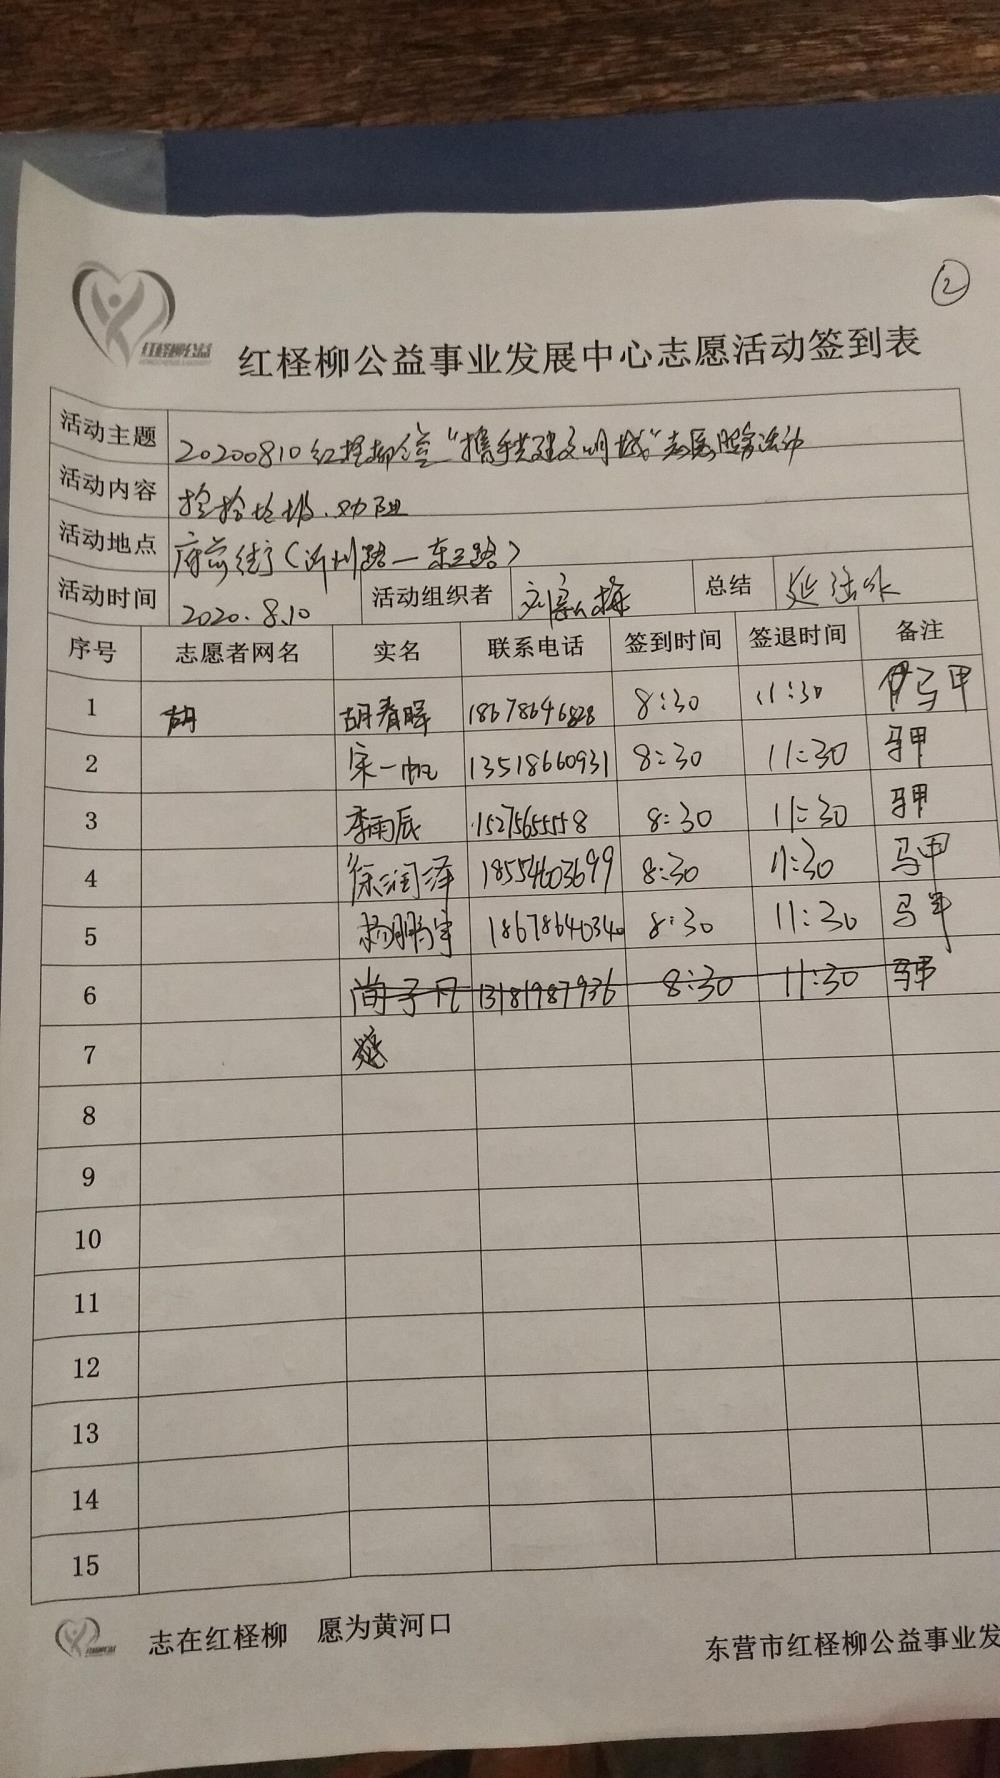 ②
红柽柳公益
红柽柳公益事业发展中心志愿活动签到表
活动主题 20200810红柽柳公益“携手共建文明城”志愿服务活动
活动内容 捡拾垃圾、劝阻
活动地点 府前街(沂州路—东三路)
活动时间 2020.8.10 活动组织者 总结
序号 志愿者网名 实名 联系电话 签到时间 签退时间 备注
1 胡 胡春晖 18678646828 8:30 11:30 马甲
2 宋一帆 13518660931 8:30 11:30 马甲
3 李雨辰 15275655558 8:30 11:30 马甲
4 徐润泽 18554603699 8:30 11:30 马甲
5 杨鹏宇 18678640340 8:30 11:30 马甲
6 尚子凡 13181987936 8:30 11:30 马甲
7
8
9
10
11
12
13
14
15
志在红柽柳 愿为黄河口
东营市红柽柳公益事业发